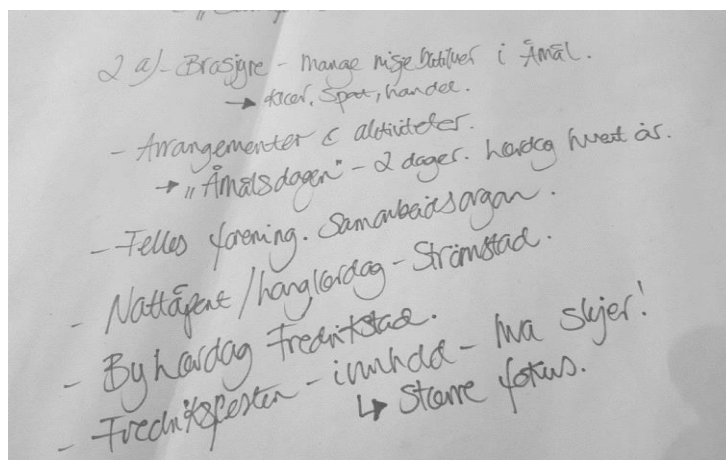 2 a) - Brasjyre - mange nisjebutikker i Åmål.
→ kaféer, Sport, handel.
- Arrangementer & aktiviteter.
→ "Åmålsdagen" - 2 dager. Lørdag hvert år.
- Felles forening. Samarbeidsorgan.
- Nattåpent / langlørdag - Strömstad.
- By lørdag Fredrikstad.
- Fredriksfesten - innhold - hva skjer!
↳ Større fokus.